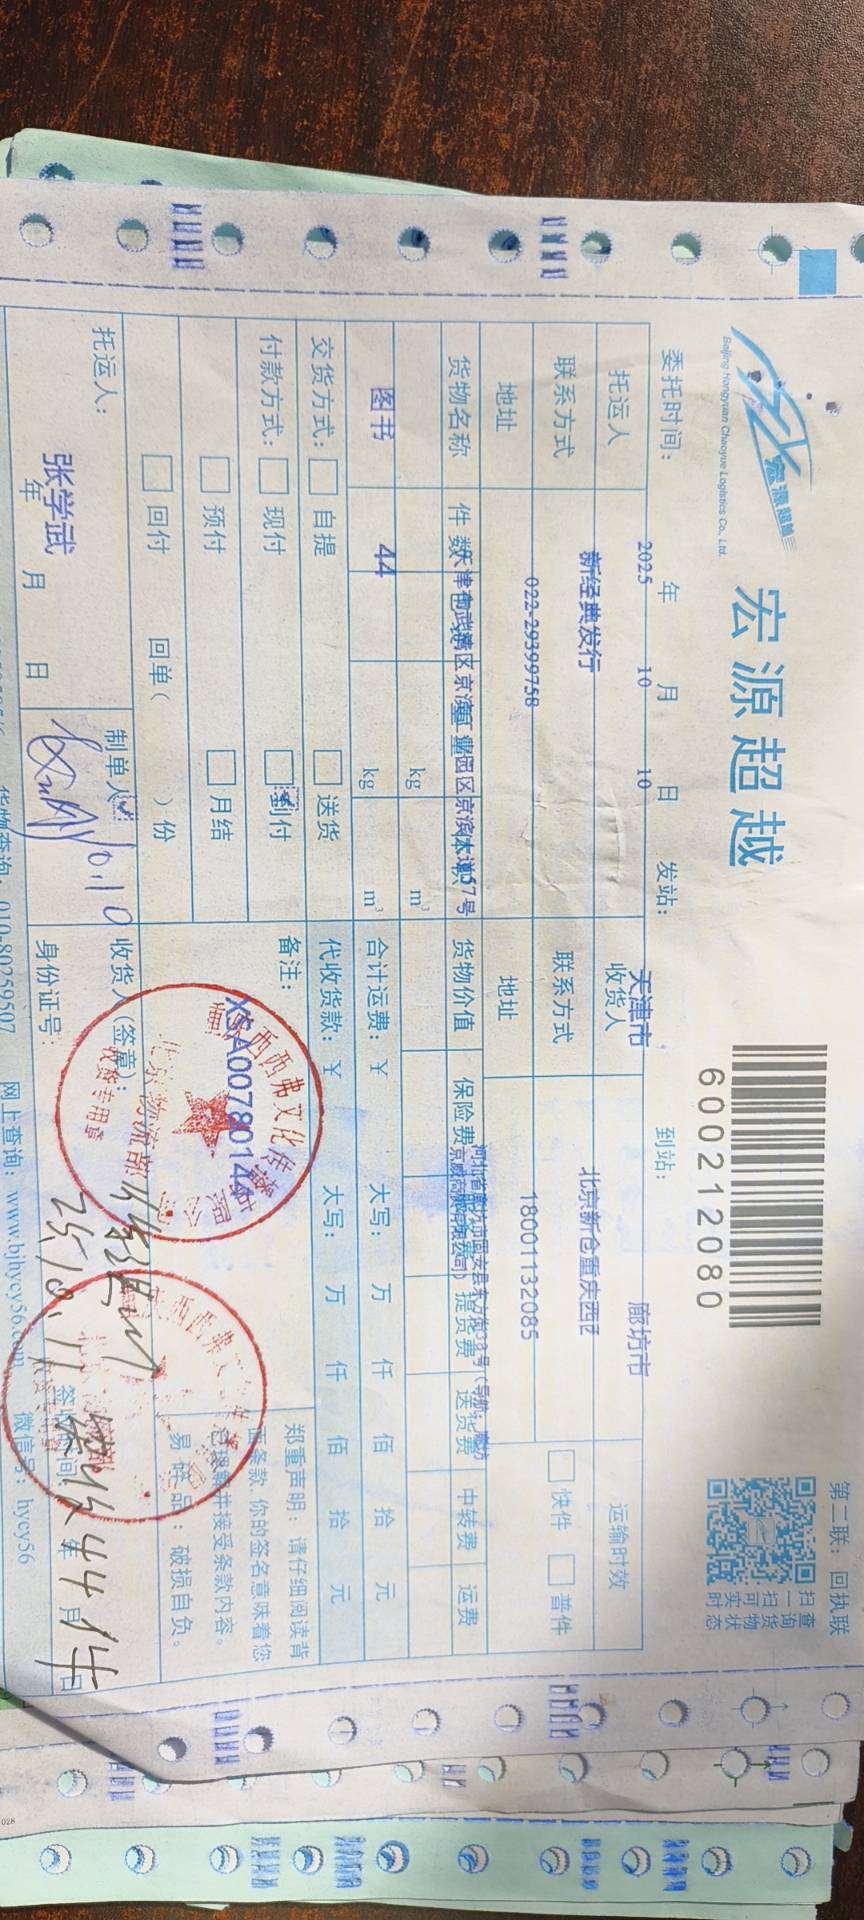 宏源超越
Beijing Hongyuan Chaoyue Logistics Co., Ltd.
宏源超越
600212080
第二联：回执联
扫一扫可实时
查询货物状态
委托时间： 2025 年 10 月 10 日 发站： 天津市 到站： 廊坊市
托运人 新经典发行 收货人 北京新仓重庆西西 运输时效
联系方式 022-29399758 联系方式 18001132085 快件 普件
地址 天津市武清区京滨工业园区京滨大道57号 地址
货物名称 件数 货物价值 保险费 提货费 送货费 中转费 运费
图书 44 kg m³
kg m³
合计运费：￥ 大写： 万 仟 佰 拾 元
交货方式： 自提 送货 代收货款：￥ 大写： 万 仟 佰 拾 元
付款方式： 现付 到付 备注：
预付 月结 XSA00780144
回付 回单（ ）份
郑重声明：请仔细阅读背
面条款，你的签名意味着您
已理解并接受条款内容。
易碎品：破损自负。
托运人： 张学武 制单人： 收货人（签章）：
10.10
年 月 日 身份证号： 签收时间： 年 月 日
25.10.11
实收44件
北京物流部
收货专用章
货物查询：010-80259507 网上查询：www.bjhycy56.com 微信号：hycy56
028